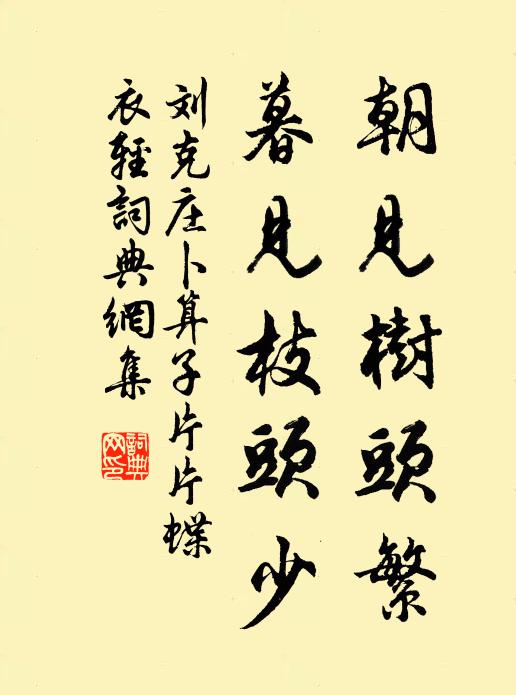 朝見樹頭繁
暮見枝頭少
刘克庄卜算子片片蝶
衣輕詞典網集
詞典
网印